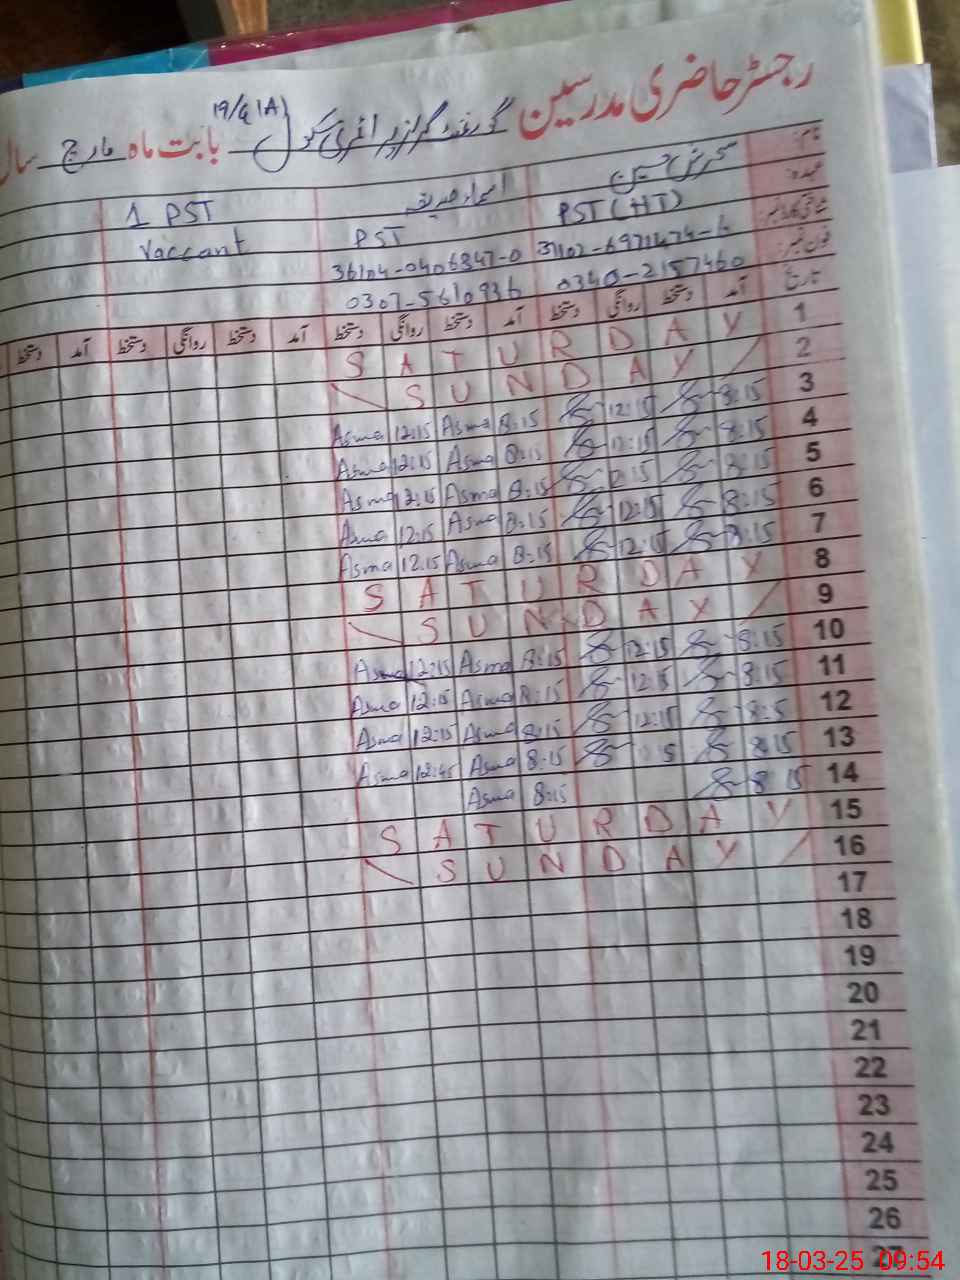 رجسٹر حاضری مدرسین گورنمنٹ گرلز پرائمری سکول 19/G(1A) بابت ماہ مارچ سال
نام: سحرش حسین اسماء صدیقہ
عہدہ: PST (HT) PST 1 PST Vaccant
شناختی کارڈ نمبر: 36104-0406847-0
فون نمبر: 0340-2157460 0307-5610936
تاریخ آمد دستخط روانگی دستخط آمد دستخط روانگی دستخط آمد دستخط روانگی دستخط آمد دستخط
1 S A T U R D A Y
2 S U N D A Y
3 8:15 12:15 8:15 Asma 12:15 Asma
4 8:15 12:15 8:15 Asma 12:15 Asma
5 8:15 12:15 8:15 Asma 12:15 Asma
6 8:15 12:15 8:15 Asma 12:15 Asma
7 8:15 12:15 8:15 Asma 12:15 Asma
8 S A T U R D A Y
9 S U N D A Y
10 8:15 12:15 8:15 Asma 12:15 Asma
11 8:15 12:15 8:15 Asma 12:15 Asma
12 8:5 12:15 8:15 Asma 12:15 Asma
13 8:15 8:15 Asma Asma
14 8 15 8:15 Asma
15 S A T U R D A Y
16 S U N D A Y
17
18
19
20
21
22
23
24
25
26
27
18-03-25 09:54